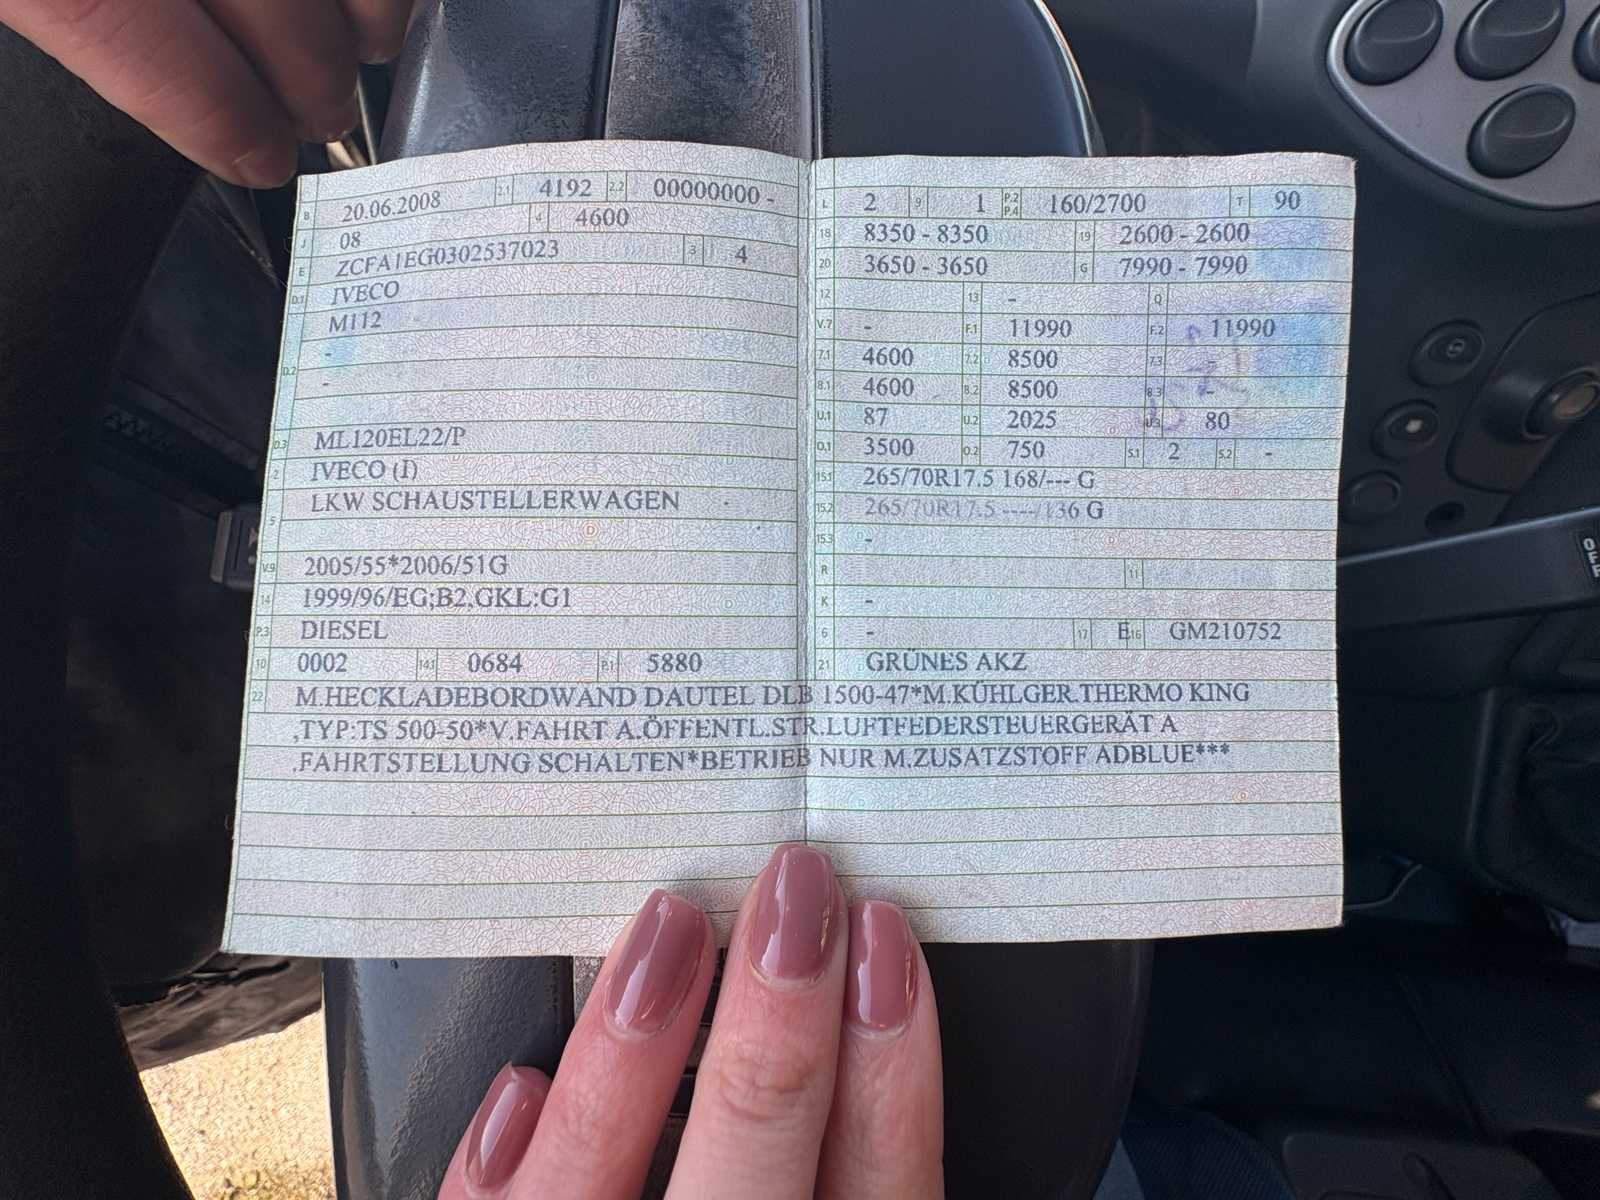 B 20.06.2008 2.1 4192 2.2 00000000 -
J 08 4 4600
E ZCFA1EG0302537023 3 4
D.1 IVECO
M112
-
D.2
-
D.3 ML120EL22/P
2 IVECO (I)
5 LKW SCHAUSTELLERWAGEN -
V.9 2005/55*2006/51G
14 1999/96/EG;B2,GKL:G1
P.3 DIESEL
10 0002 14.1 0684 P.1 5880
L 2 9 1 P.2 P.4 160/2700 T 90
18 8350 - 8350 19 2600 - 2600
20 3650 - 3650 G 7990 - 7990
12 - 13 - Q
V.7 - F.1 11990 F.2 11990
7.1 4600 7.2 8500 7.3 -
8.1 4600 8.2 8500 8.3 -
U.1 87 U.2 2025 U.3 80
O.1 3500 O.2 750 S.1 2 S.2 -
15.1 265/70R17.5 168/--- G
15.2 265/70R17.5 ----/136 G
15.3 -
R 11
K -
6 - 17 E 16 GM210752
21 GRÜNES AKZ
22 M.HECKLADEBORDWAND DAUTEL DLB 1500-47*M.KÜHLGER.THERMO KING
,TYP:TS 500-50*V.FAHRT A.ÖFFENTL.STR.LUFTFEDERSTEUERGERÄT A
.FAHRTSTELLUNG SCHALTEN*BETRIEB NUR M.ZUSATZSTOFF ADBLUE***
OFF